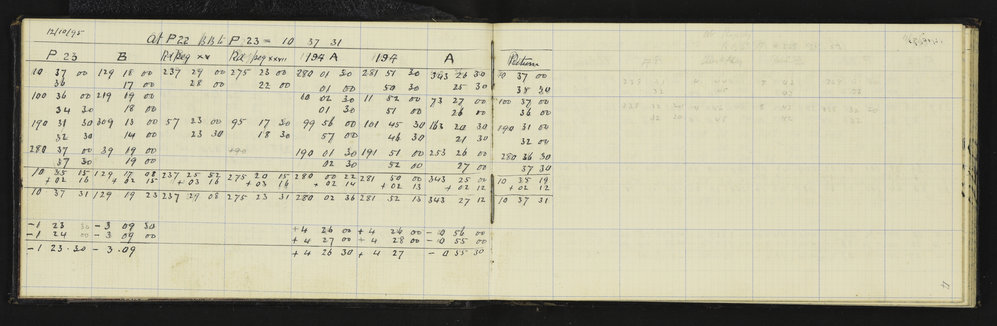 12/10/95
At P22 P 23 = 10 37 31
P 23 B Rd/peg xv Rd/peg xxvii 194 A 194 A Return
10 37 00 129 18 00 237 29 00 275 23 00 280 01 30 281 51 30 343 26 30 10 37 00
36 17 00 28 00 22 00 01 00 50 30 25 30 38 30
100 36 00 219 19 00 10 02 30 11 52 00 73 27 00 100 37 00
34 30 18 00 01 30 51 00 26 00 36 00
190 31 30 309 13 00 57 23 00 95 17 30 99 56 00 101 45 30 163 20 30 190 31 00
32 30 14 00 23 30 18 30 57 00 46 30 21 30 32 00
280 37 00 39 19 00 +90 190 01 30 191 51 00 253 26 00 280 36 30
37 30 19 00 02 30 52 00 27 00 37 30
10 35 15 129 17 08 237 25 52 275 20 15 280 00 22 281 50 00 343 25 00 10 35 19
+ 02 16 + 02 15 + 03 16 + 03 16 + 02 14 + 02 13 + 02 12 + 02 12
10 37 31 129 19 23 237 29 08 275 23 31 280 02 36 281 52 13 343 27 12 10 37 31
- 1 23 30 - 3 09 30 + 4 26 00 + 4 26 00 - 0 56 00
- 1 24 00 - 3 09 00 + 4 27 00 + 4 28 00 - 0 55 00
- 1 23 . 30 - 3 . 09 + 4 26 30 + 4 27 - 0 55 30